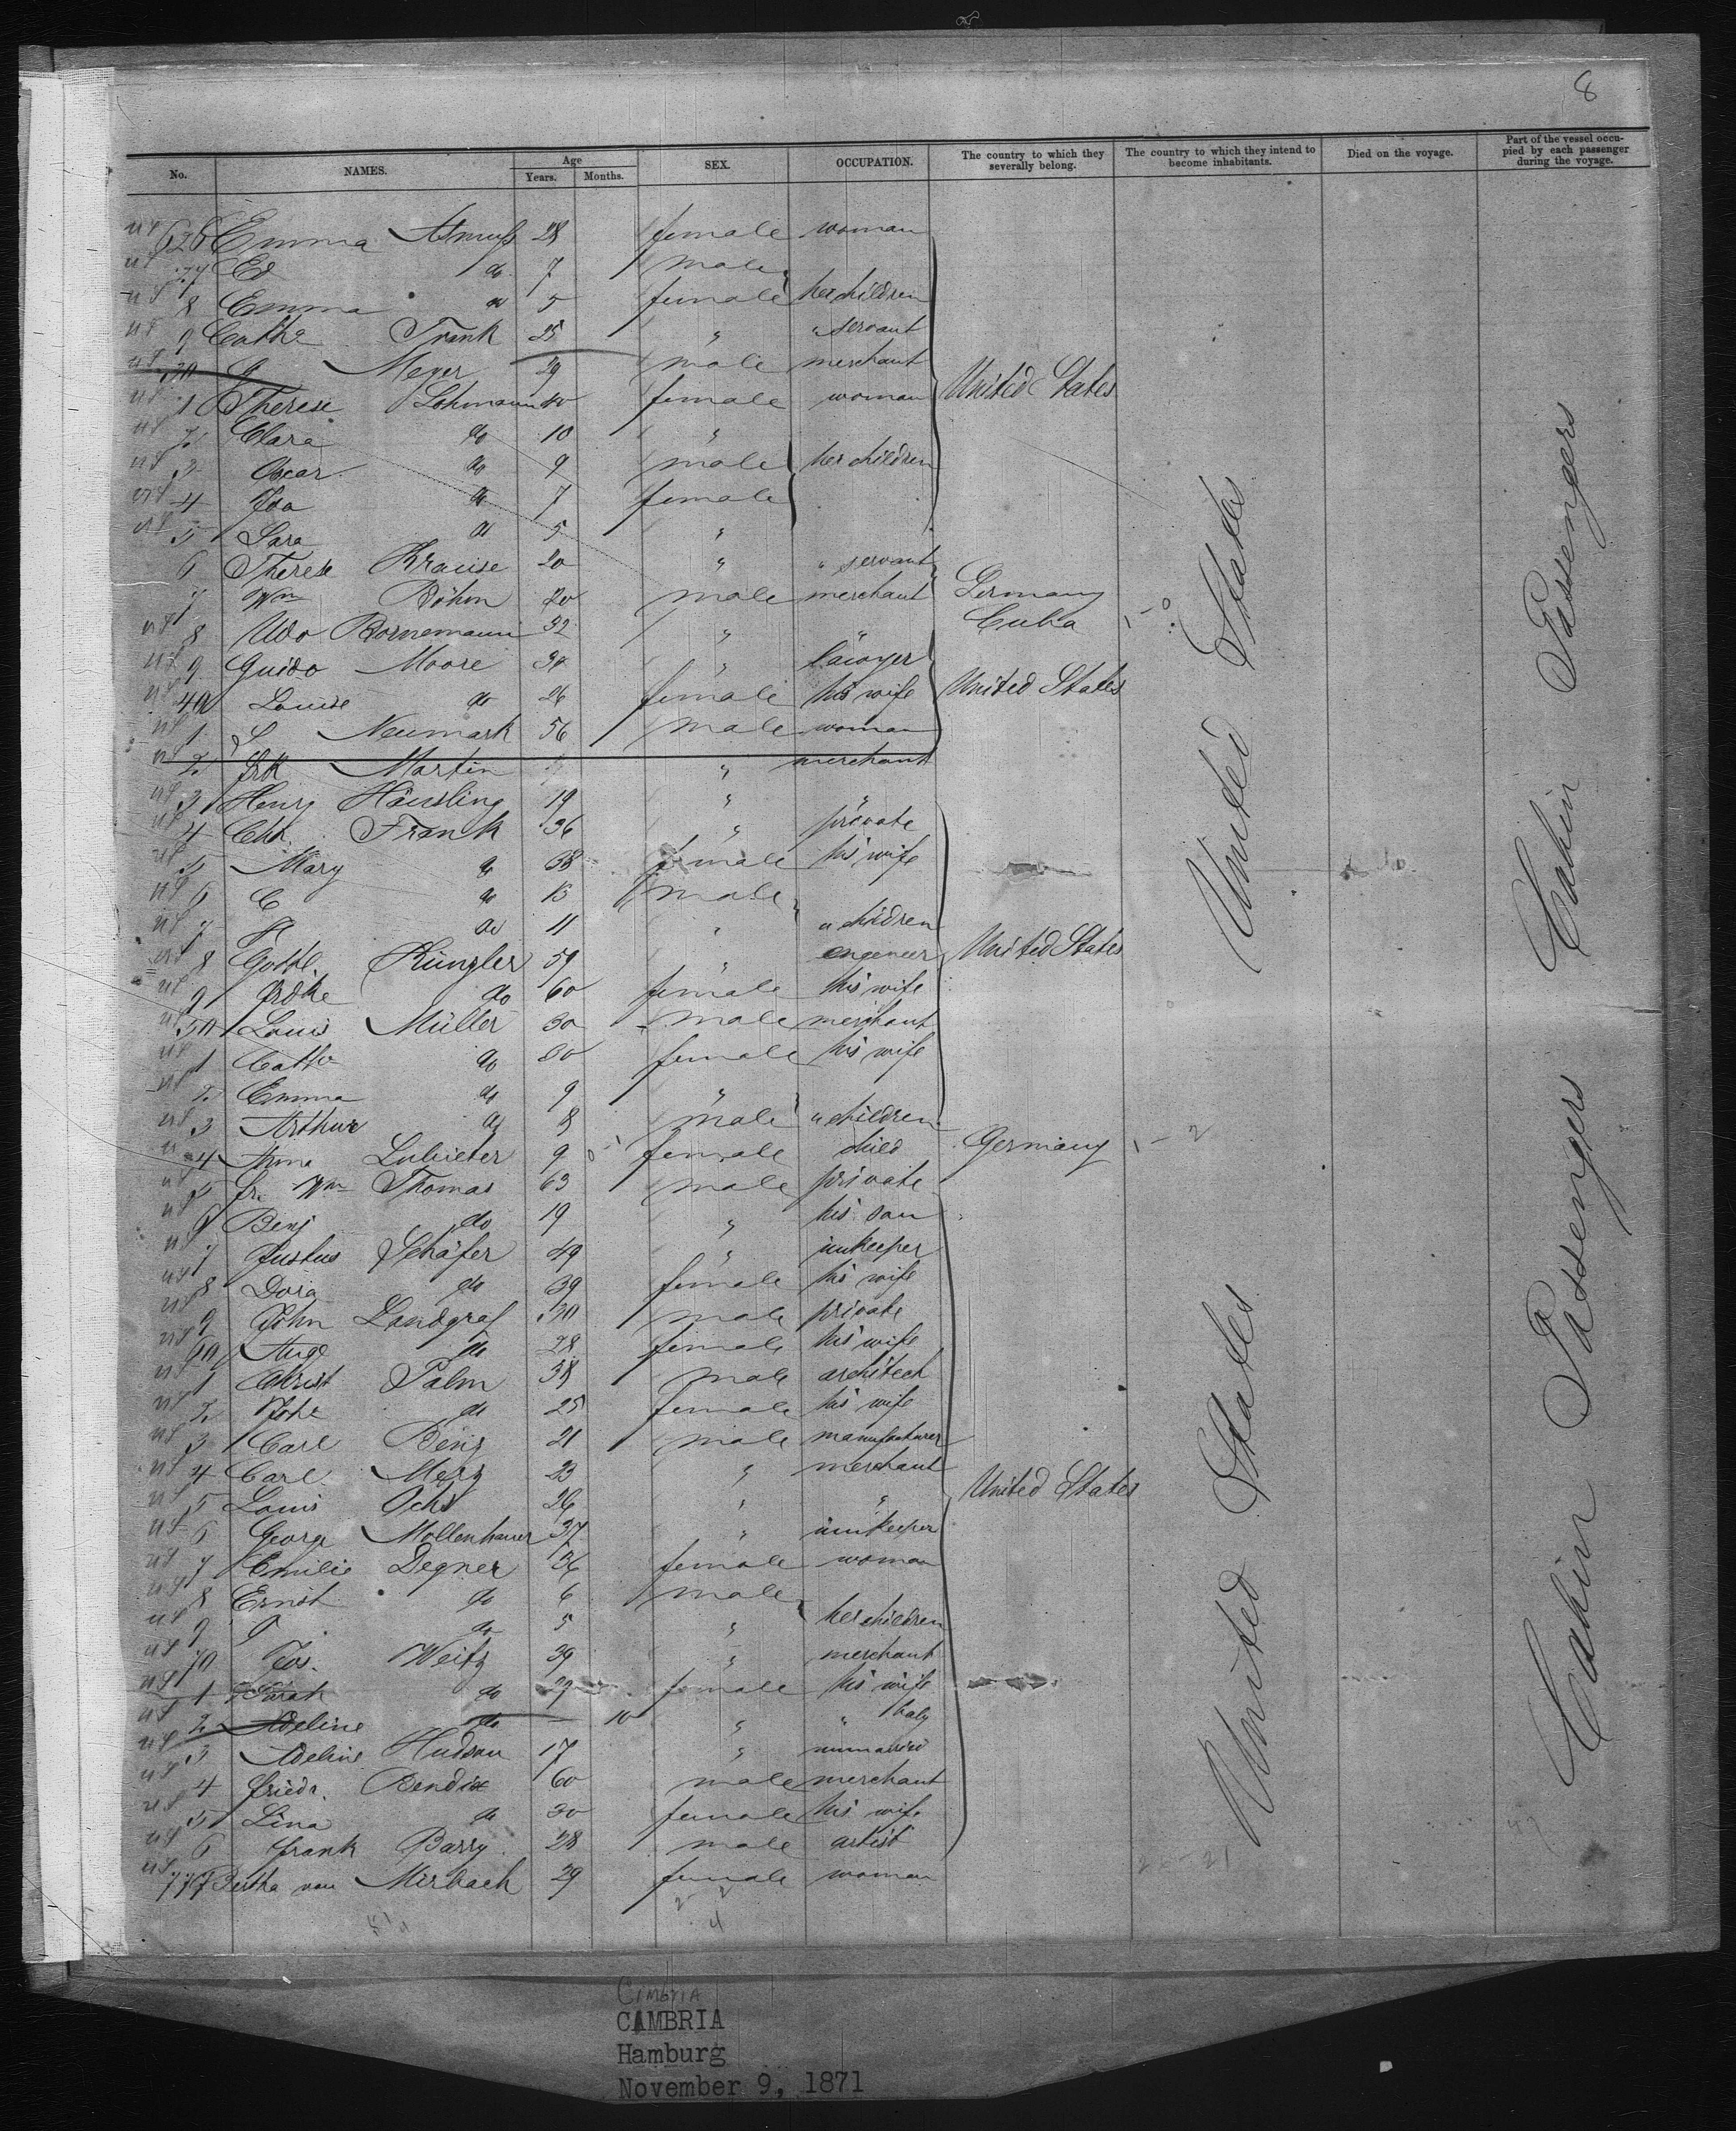 8
No. NAMES. Age Years. Months. SEX. OCCUPATION. The country to which they severally belong. The country to which they intend to become inhabitants. Died on the voyage. Part of the vessel occupied by each passenger during the voyage.
626 Emma 28 female woman
27 Ed do 7 male
8 Emma do 5 female her children
9 Cathe Frank 25 " " servant
30 G Meyer 29 male merchant
1 Therese Lohmann 40 female woman United States
2 Clara do 10 "
3 Oscar do 9 male her children
4 Ida do 7 female
5 Sara do 5 "
6 Therese Krause 20 " " servant
7 Wm Böhm 20 male merchant Germany
8 Udo Bornemann 52 " " Cuba
9 Guido Moore 34 " lawyer
40 Louise do 26 female his wife United States
1 S Neumark 56 male woman
2 Frk Martin " merchant
3 Henry Häusling 19 " "
4 Chr. Frank 36 " private
5 Mary do 38 female his wife
6 C do 13 male
7 do 11 " " children
8 Gottl. Küngler 59 " engeneer United States
9 Frdke do 60 female his wife
50 Louis Müller 30 male merchant
1 Cathe do 30 female his wife
2 Emma do 9 "
3 Arthur do 8 male " children
4 Anna 9 female child Germany
5 Fr. Wm Thomas 63 male private
6 Benj do 19 " his son
7 Justus Schäfer 49 " innkeeper
8 Dora do 39 female his wife
9 John Landgraf 30 male private
60 Auge do 28 female his wife
1 Christ Palm 38 male architect
2 Johe do 25 female his wife
3 Carl Benz 21 male manufacturer
4 Carl Merz 23 " merchant
5 Louis Ochs 26 " " United States
6 George Mollenhauer 37 " innkeeper
7 Emilie Degner 36 female woman
8 Ernst do 6 male
9 G do 5 " her children
70 Jos. Weitz 39 " merchant
1 Sarah do 29 female his wife
2 Adeline do — 10 " " baby
3 Adeline Hudson 17 " unmarried
4 Friedr. Bendix 60 male merchant
5 Lina do 30 female his wife
6 Frank Barry 28 male artist
777 Bertha von Mirbach 29 female woman
United States
United States
Cabin Passengers
Cabin Passengers
Cimbria
CAMBRIA
Hamburg
November 9, 1871